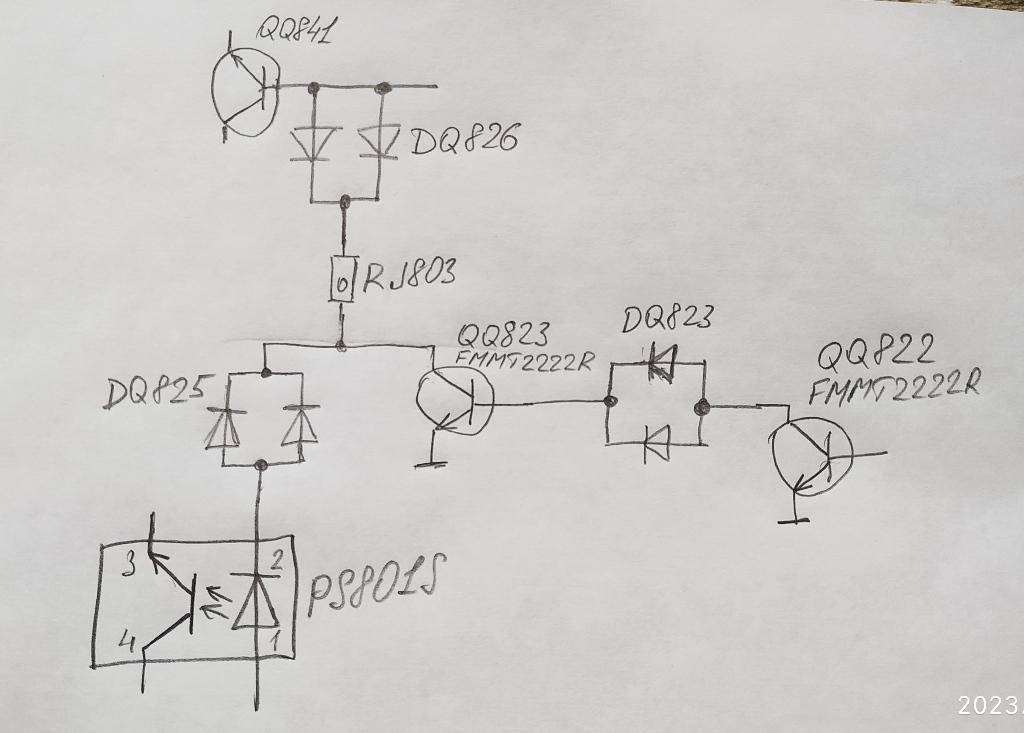 QQ841
DQ826
0
RJ803
QQ823
FMMT2222R
DQ823
QQ822
FMMT2222R
DQ825
3
2
PS801S
4
1
2023